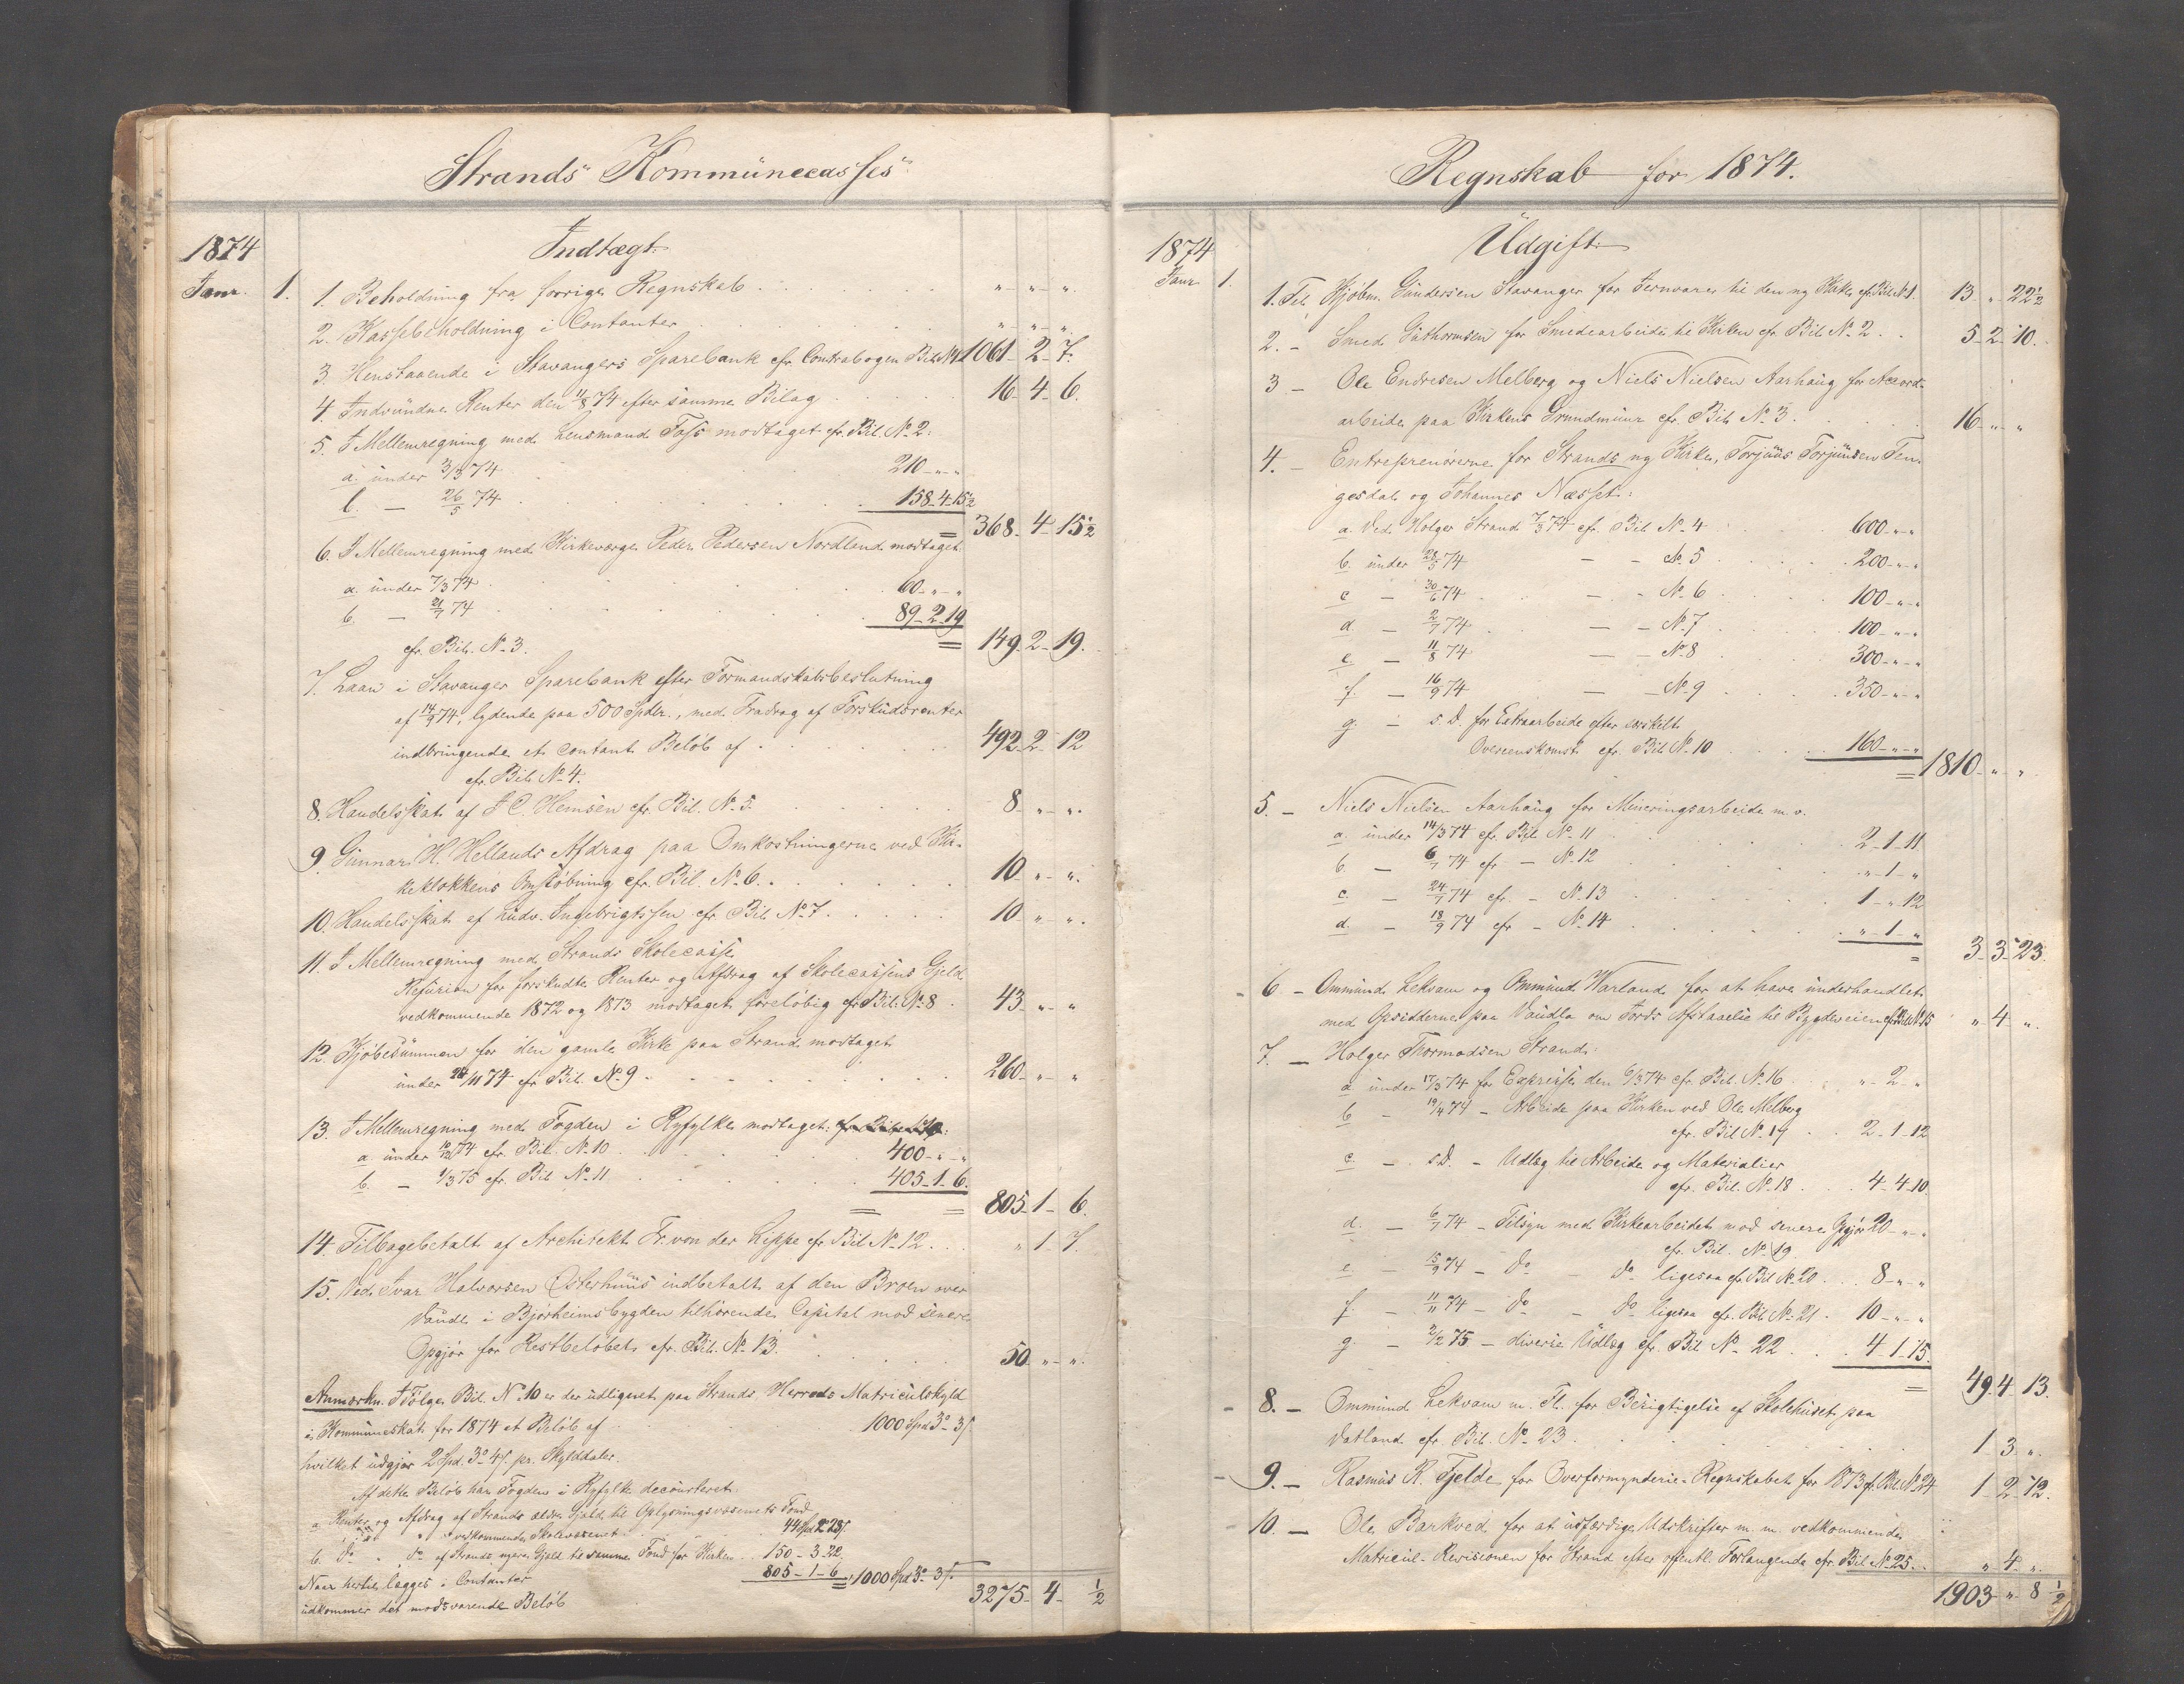 Strands Kommünecasses
1874
Indtægt.
Janr. 1.
1. Beholdning fra forrige Regnskab . . . „ - „ - „.
2. Kassebeholdning i Contanter . . . „ - „ - „.
3. Henstaaende i Stavangers Sparebank cfr. Contrabogen Bil. № 1 1061 - 2 - 7.
4. Indvündne Renter den 11/8 74 efter samme Bilag . . 16 - 4 - 6.
5. I Mellemregning med Lensmand Foss modtaget cfr. Bil. № 2:
a. ünder 3/3 74 . . . 210 - „ - „
b. — 26/5 74 . . . 158 - 4 - 15½
= 368 - 4 - 15½
6. I Mellemregning med Kirkeværge Peder Pedersen Nordland modtaget
a. ünder 7/3 74 . . . 60 - „ - „
b. — 21/7 74 . . . 89 - 2 - 19
cfr. Bil. № 3. = 149 - 2 - 19.
7. Laan i Stavanger Sparebank efter Formandskabsbeslutning
af 14/9 74, lydende paa 500 Spdlr., med Fradrag af Forskudsrenter
indbringende et contant Beløb af . . . 492 - 2 - 12
cfr. Bil. № 4.
8. Handelsskat af J. C. Hemsen cfr. Bil. № 5. . . 8 - „ - „.
9. Günnar H. Hellands Afdrag paa Omkostningerne ved Kir-
keklokkens Omstøbning cfr. Bil. № 6. . . 10 - „ - „.
10. Handelsskat af Lüdv. Ingebrigtssen cfr. Bil. № 7. . . 10 - „ - „.
11. I Mellemregning med Strands Skolecasse
Refüsion for forskudte Renter og Afdrag af Skolecassens Gjeld
vedkommende 1872 og 1873 modtaget foreløbig cfr. Bil. № 8 . 43 - „ - „
12. Kjøbesümmen for den gamle Kirke paa Strand modtaget
ünder /11 74 cfr. Bil. № 9 . . . 260 - „ - „
13. I Mellemregning med Fogden i Ryfylke modtaget:
a. ünder 74 cfr. Bil. № 10 . . . 400 - „ - „
b. — 1/3 75 cfr. Bil. № 11 . . . 405 - 1 - 6.
= 805 - 1 - 6.
14. Tilbagebetalt af Architekt Fr. von der Lippe cfr. Bil. № 12. . . „ - 1 - 7.
15. Ved Ivar Halvorsen Østerhuüs indbetalt af den Broen over
Vaüdle i Bjørheimsbygden tilhørende Capital mod senere
Opgjør for Restbeløbet cfr. Bil. № 13. . . 50 - „ - „.
Anmærkn. I Følge Bil. № 10 er der üdlignet paa Strands Herreds Matriculskyld
i Kommüneskat for 1874 et Beløb af . . . 1000 Spd 3° 3/
hvilket üdgjør 2 Spd. 3° 4/. pr. Skylddaler.
Af dette Beløb har Fogden i Ryfylke decourteret
a. Renter og Afdrag af Strands ældre Gjæld til Oplysningsvæsenets Fond
vedkommende Skolevæsenet . . 44 Spd 2° 23/.
b. d° „ d° af Strands nyere Gjæld til samme Fond for Kirken . . 150 - 3 - 22.
Naar hertil lægges i Contanter 805 - 1 - 6 = 1000 Spd 3° 3/.
üdkommer det modsvarende Beløb
3275 - 4 - ½
Regnskab for 1874.
1874
Üdgift.
Janr. 1.
1. Til Kjøbm. Gündersen Stavanger for Jernvarer til den ny Kirke cfr. Bil. № 1. 13 - „ - 22½
2. - Smed Güthormsen for Smedearbeide til Kirken cfr. Bil. № 2. . 5 - 2 - 10.
3 — Ole Endresen Melberg og Niels Nielsen Aarhaüg for Accord-
arbeide paa Kirkens Grundmüür cfr. Bil. № 3. . . 16 - „ - „
4. — Entreprenørerne for Strands ny Kirke, Torjüüs Torjüüsen Ten-
gesdal og Johannes Næsset:
a. Ved Holger Strand 7/3 74 cfr. Bil № 4 . . 600 - „ - „
b. ünder 28/5 74 — - № 5 . . 200 - „ - „
c — 30/6 74 . — - № 6 . . 100 - „ - „
d. — 2/7 74 . — - № 7 . . 100 - „ - „
e. — 11/8 74 — - № 8 . . 300 - „ - „
f. — 16/9 74 — - № 9 . . 350 - „ - „
g. — s. D. for Extraarbeide efter særskilt
Overeenskomst cfr. Bil. № 10 . . 160 - „ - „
= 1810 - „ - „.
5. — Niels Nielsen Aarhaüg for Mineringsarbeide m. v.
a. ünder 14/3 74 cfr. Bil. № 11 . . 2 - 1 - 11
b. — 6/7 74 cfr. — № 12 . . „ - 1 - „
c. — 24/7 74 cfr. — № 13 . . 1 - „ - 12
d. — 18/9 74 cfr — № 14 . . „ - 1 - „
= 3 - 3 - 23.
6 — Ommünd Lekvam og Ommünd Warland for at have ünderhandlet
med Opsidderne paa Vaüdla om Jords Afstaaelse til Bygdeveien cfr. Bil. № 15 „ - 4 - „.
7. — Holger Thormodsen Strand:
a. ünder 17/3 74 for Expresse den 6/3 74 cfr. Bil. № 16 . „ - 2 - „
b — 19/4 74 — Arbeide paa Kirken ved Ole Melberg
cfr. Bil. № 17 . . 2 - 1 - 12
c. — s. D. — Udlæg til Arbeide og Materialier
cfr. Bil. № 18 . . 4 - 4 - 10.
d. — 6/7 74 — Tilsyn med Kirkearbeidet mod senere Opgjør 20 - „ - „
cfr. Bil. № 19
e — 15/9 74 — d° — d° ligesaa cfr. Bil. № 20 . . 8 - „ - „
f. — 11/11 74 — d° — d° ligesaa cfr. Bil. № 21 . 10 - „ - „
g — 2/2 75 — diverse Üdlæg cfr. Bil № 22 . . 4 - 1 - 15.
= 49 - 4 - 13.
8. — Ommünd Lekvam m. Fl. for Besigtigelse af Skolehüset paa
Vatland cfr. Bil. № 23 . . 1 - 3 - „.
9. — Rasmüs R. Fjelde for Overformynderie-Regnskabet for 1873 cfr. Bil. № 24 1 - 2 - 12.
10. — Ole Barkved for at üdfærdige Udskrifter m. m. vedkommende
Matricul-Revisionen for Strand efter offentl. Forlangende cfr. Bil. № 25. . „ - 4 - „.
1903 - „ - 8 ½